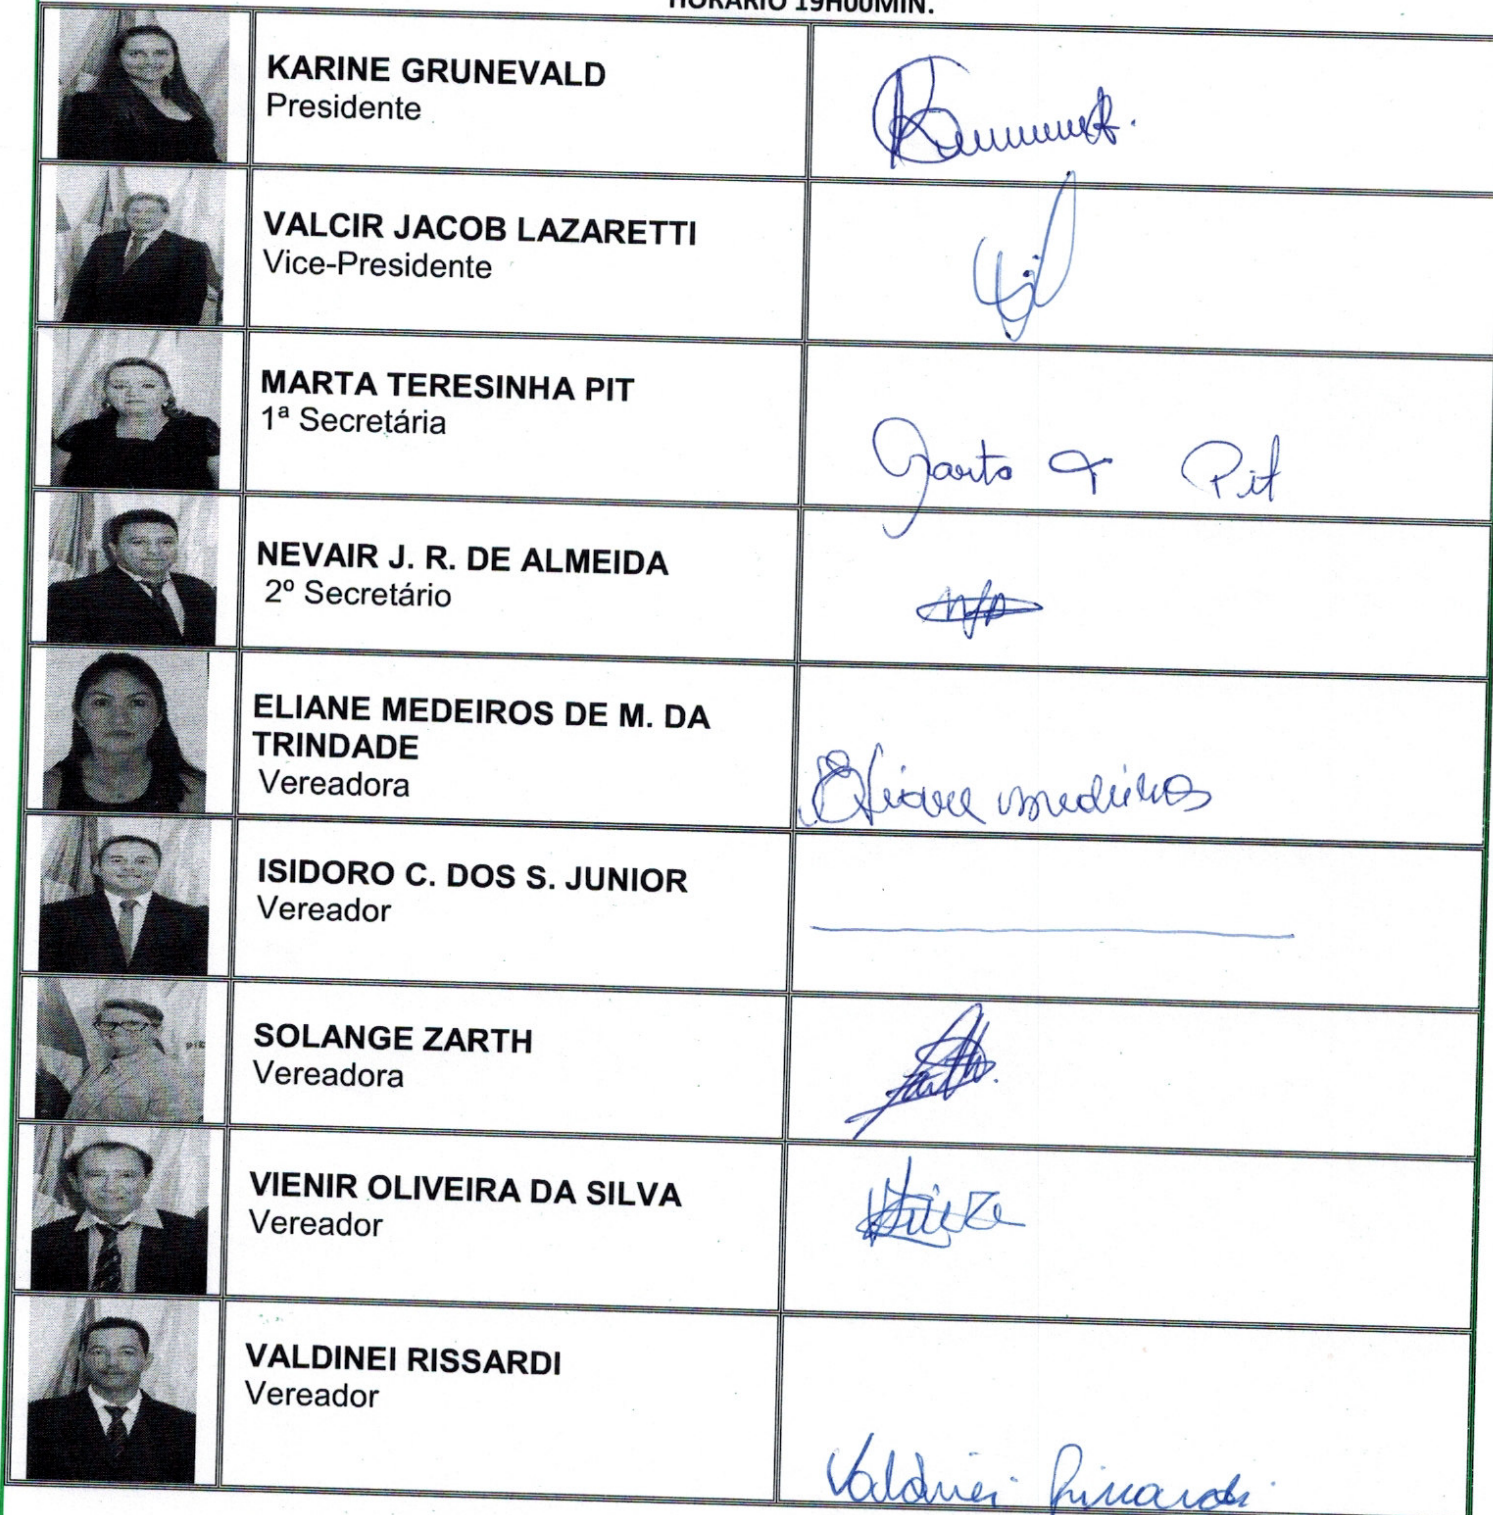 HORÁRIO 19H00MIN.
KARINE GRUNEVALD
Presidente
VALCIR JACOB LAZARETTI
Vice-Presidente
MARTA TERESINHA PIT
1ª Secretária
Marta T Pit
NEVAIR J. R. DE ALMEIDA
2º Secretário
ELIANE MEDEIROS DE M. DA
TRINDADE
Vereadora
Eliane Medeiros
ISIDORO C. DOS S. JUNIOR
Vereador
SOLANGE ZARTH
Vereadora
VIENIR OLIVEIRA DA SILVA
Vereador
VALDINEI RISSARDI
Vereador
Valdinei Rissardi